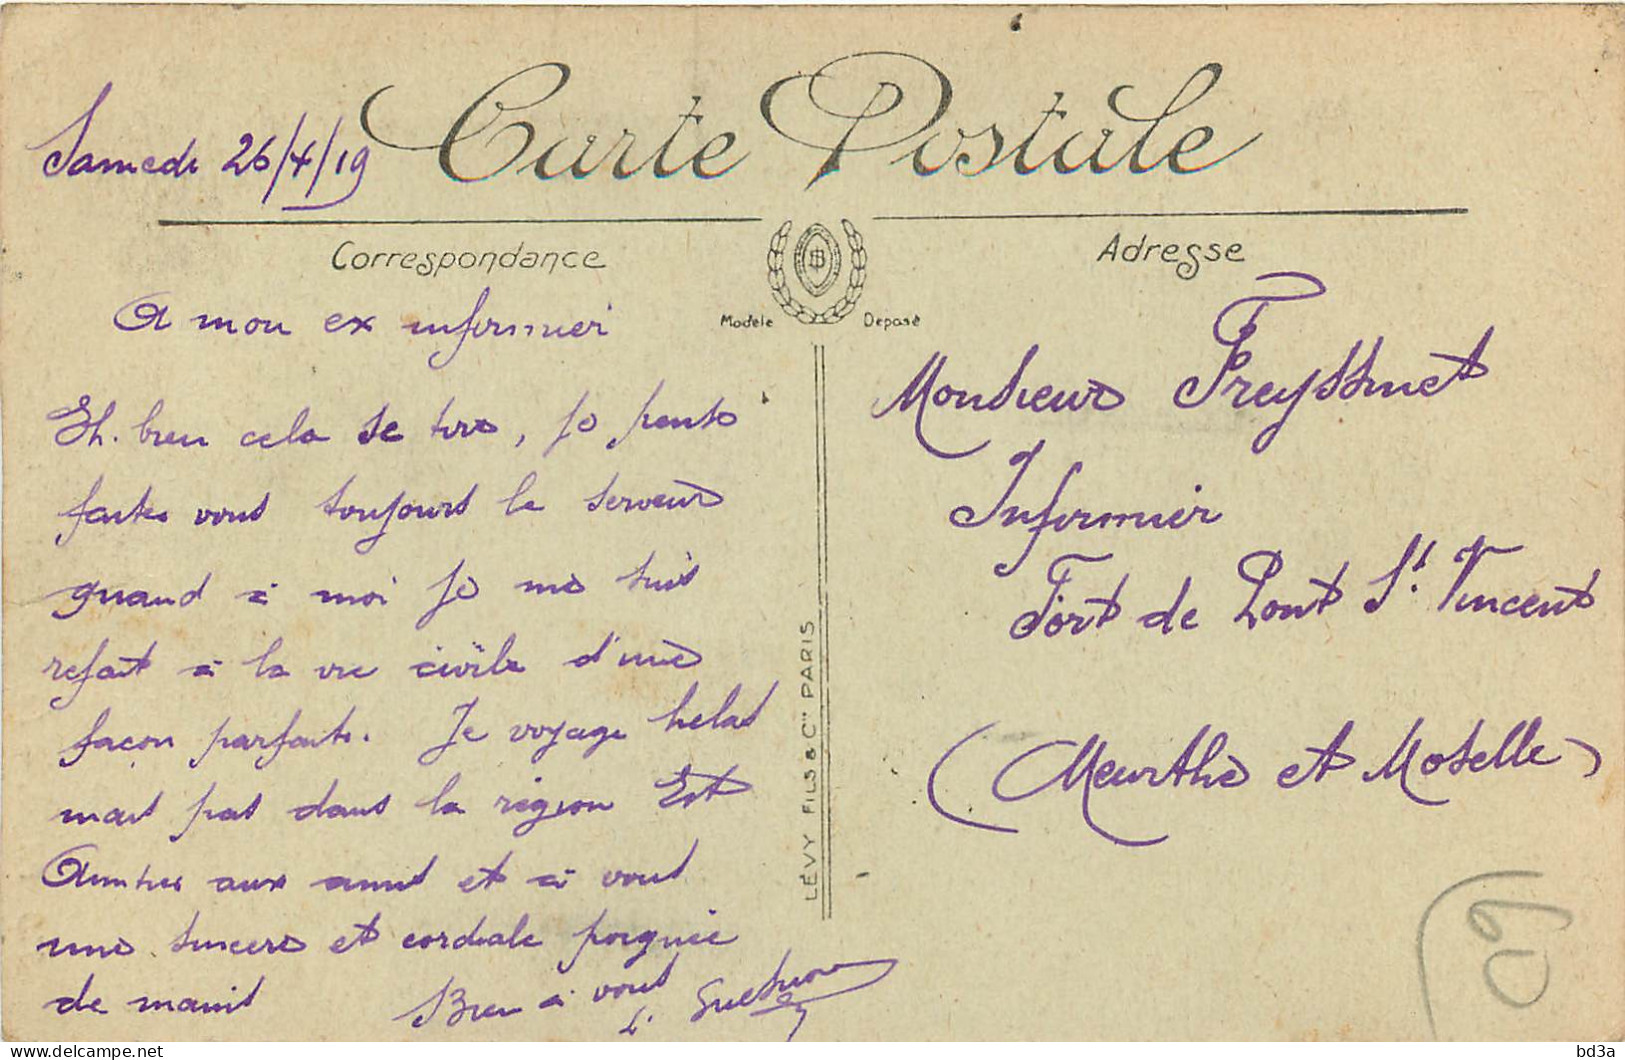 Samedi 26/4/19
Carte Postale
Correspondance
Adresse
Modèle Déposé
A mon ex infirmier
Eh. bien cela se tire, je pense
faites vous toujours le serveur
quand à moi je me suis
refait à la vie civile d'une
façon parfaite. Je voyage helas
mais pas dans la région Est
Amitiés aux amis et à vous
une sincere et cordiale poignée
de mains Bien à vous
Monsieur Freyssinet
Infirmier
Fort de Pont St. Vincent
(Meurthe et Moselle)
LÉVY FILS & Cie PARIS
bd3a